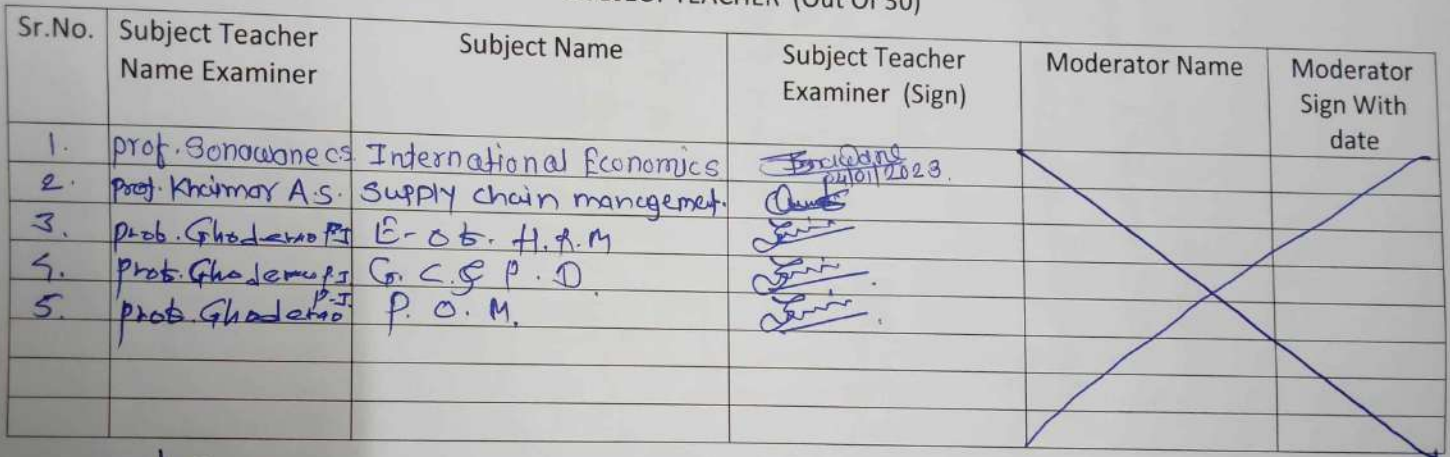 TEACHER (Out Of 30)
Sr.No. Subject Teacher Name Examiner Subject Name Subject Teacher Examiner (Sign) Moderator Name Moderator Sign With date
1. prof. Sonawane cs International Economics Sonawane 04/01/2023.
2. prof. Khairnar A.S. Supply chain management.
3. prob. Ghodemo P.I E-of. H.R.M
4. prob. Ghodemo P.I G. C. & P. D.
5. prob. Ghodemo P.I. P. O. M.